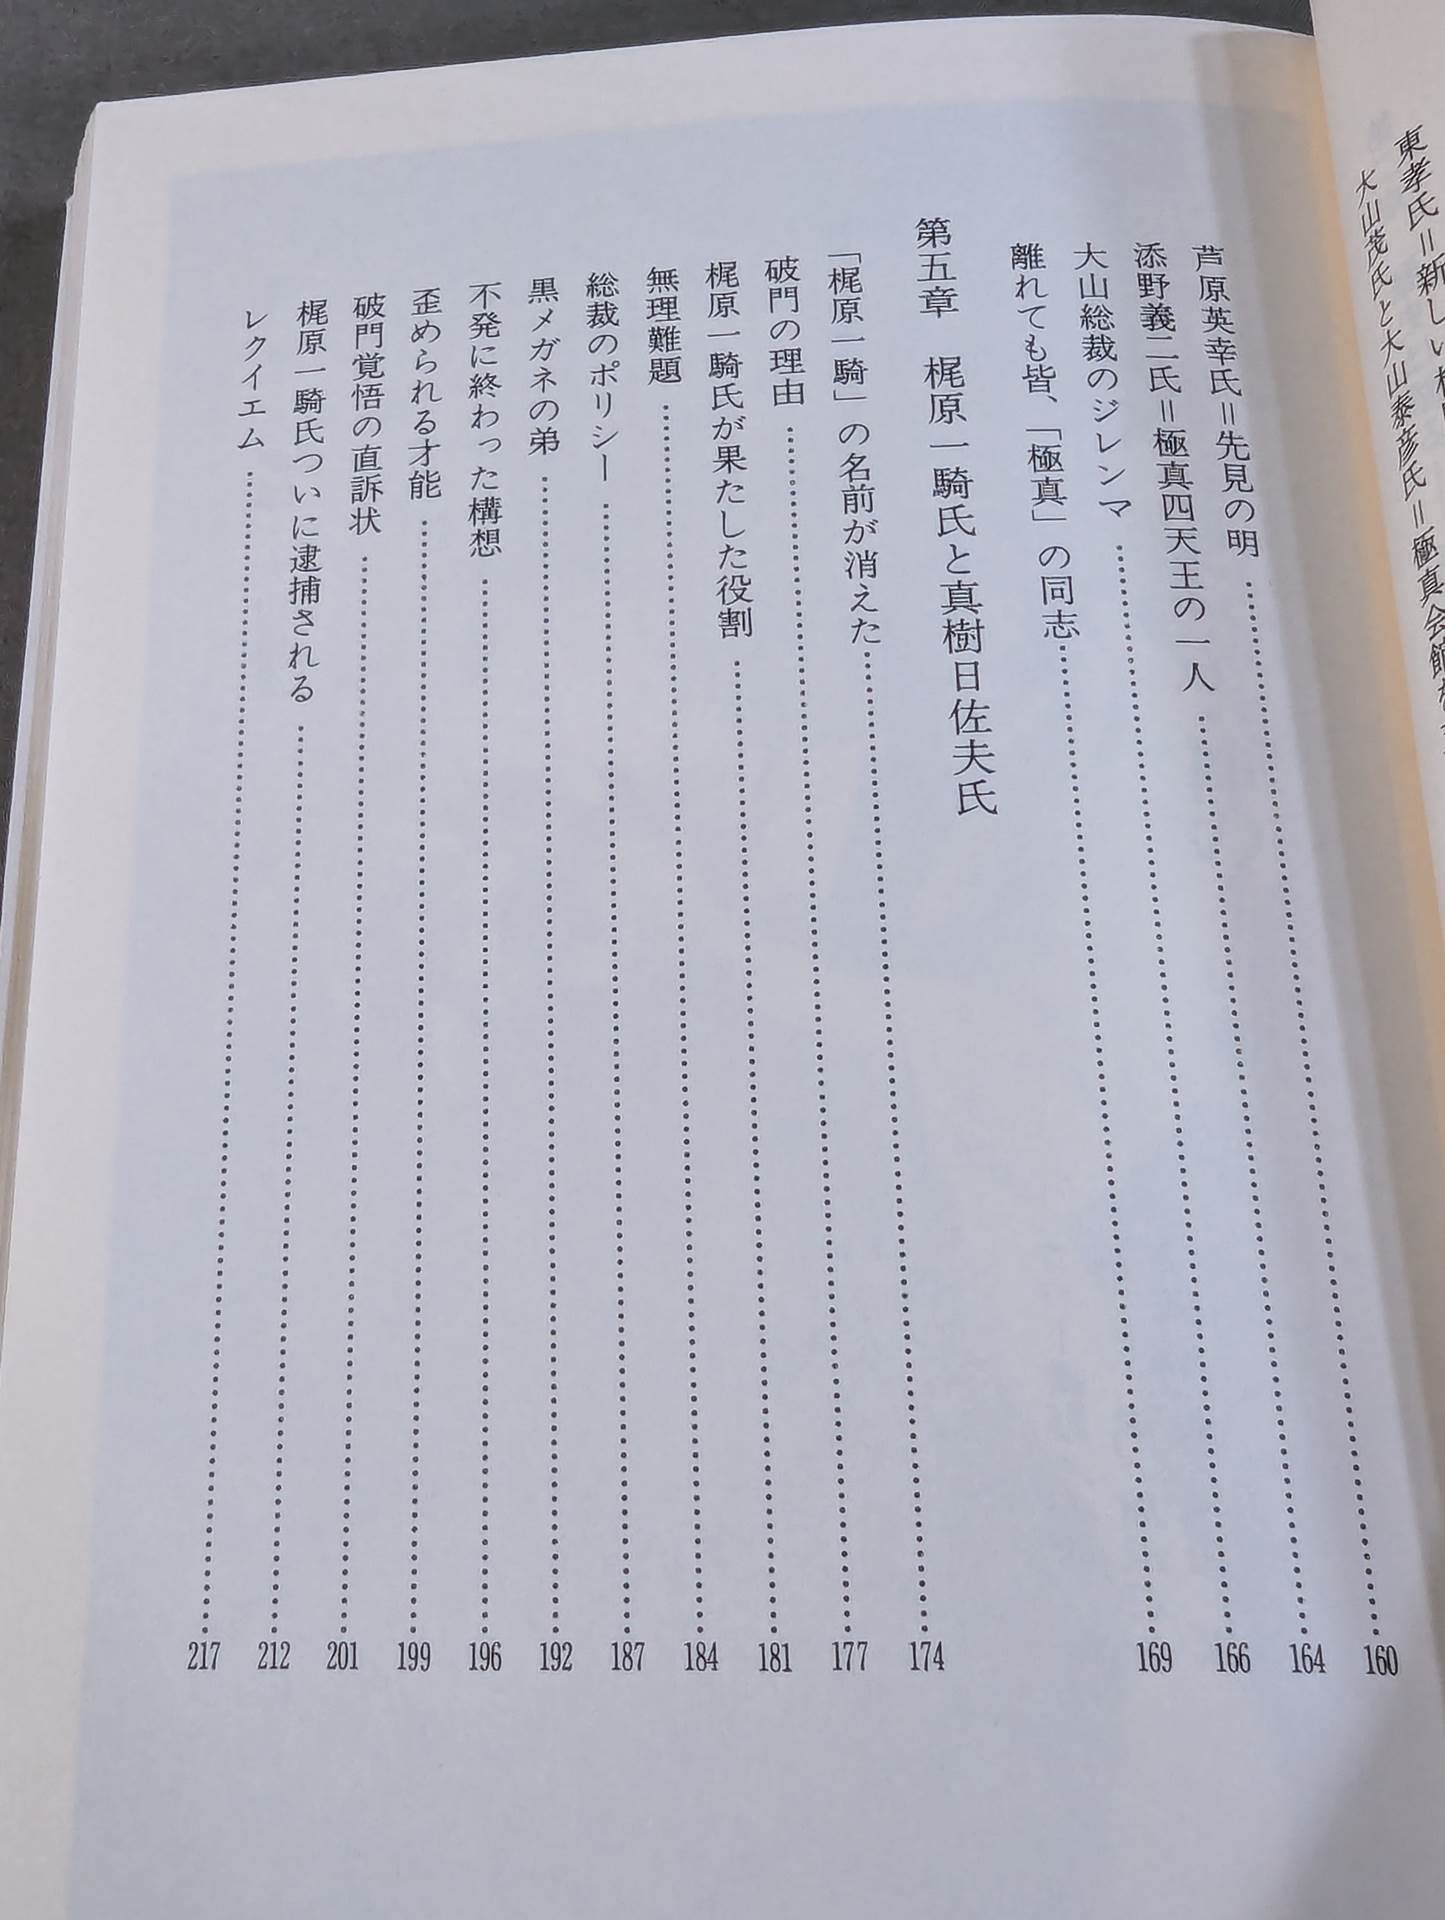 東孝氏＝新しい
大山茂氏と大山泰彦氏＝極真会館
芦原英幸氏＝先見の明……160
添野義二氏＝極真四天王の一人……164
大山総裁のジレンマ……166
離れても皆、「極真」の同志……169
第五章　梶原一騎氏と真樹日佐夫氏
「梶原一騎」の名前が消えた……174
破門の理由……177
梶原一騎氏が果たした役割……181
無理難題……184
総裁のポリシー……187
黒メガネの弟……192
不発に終わった構想……196
歪められる才能……199
破門覚悟の直訴状……201
梶原一騎氏ついに逮捕される……212
レクイエム……217